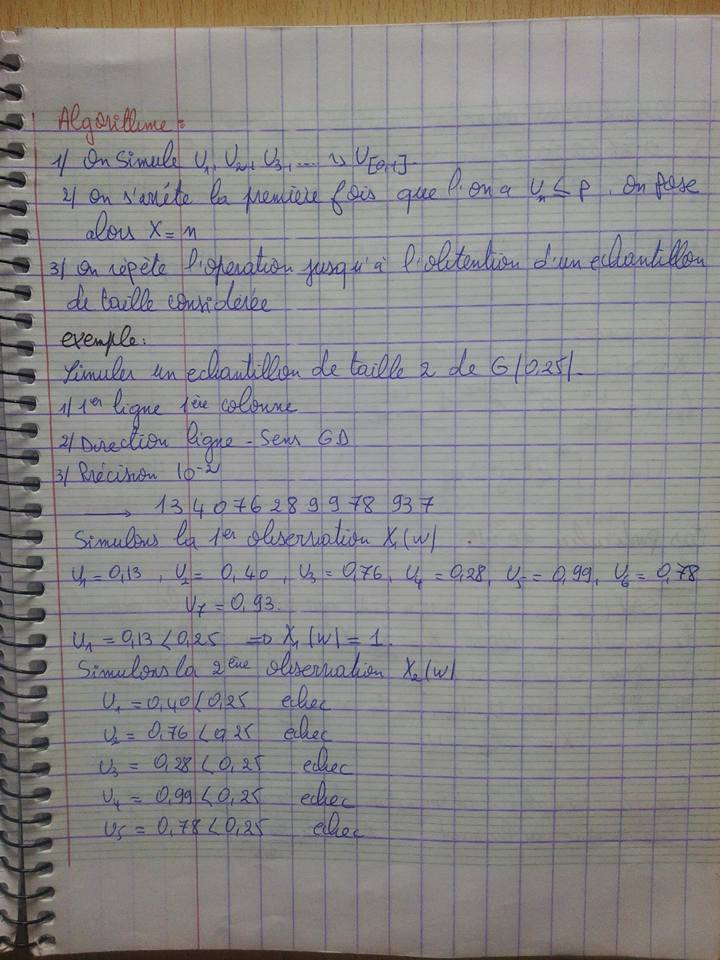 Algorithme:
1/ On Simule U1, U2, U3, .... ~> U[0,1].
2/ on s'arrête la première fois que l'on a Un ≤ p. on pose
alors X = n
3/ on répète l'operation jusqu'à l'obtention d'un echantillon
de taille considérée
exemple:
Simuler un echantillon de taille 2 de G(0,25).
1/ 1er ligne 1ère colonne
2/ Direction ligne - Sens GD
3/ Précision 10-2
→ 13 40 76 28 99 78 937
Simulons la 1er observation X1(w).
U1 = 0,13, U2 = 0,40, U3 = 0,76, U4 = 0,28, U5 = 0,99, U6 = 0,78
U7 = 0,93.
U1 = 0,13 < 0,25 => X1(w) = 1.
Simulons la 2ème observation X2(w)
U1 = 0,40 < 0,25 echec
U2 = 0,76 < 0,25 echec
U3 = 0,28 < 0,25 echec
U4 = 0,99 < 0,25 echec
U5 = 0,78 < 0,25 echec